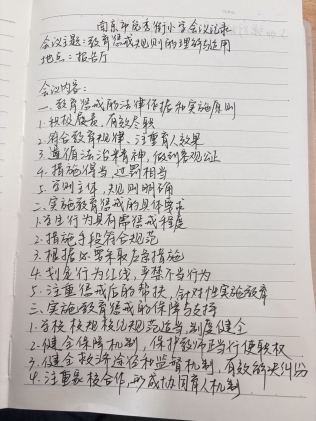 南京市优秀街小学会议记录
会议主题：教育惩戒规则的理解与运用
地点：报告厅
会议内容：
一.教育惩戒的法律依据和实施原则
1.积极履责，有效尽职
2.符合教育规律、注重育人效果
3.遵循法治精神，做到客观公正
4.措施得当，过罚相当
5.育则主体，规则明确
二.实施教育惩戒的具体要求
1.学生行为具有需惩戒程度
2.措施手段符合规范
3.根据必要采取应急措施
4.划定行为红线，严禁不当行为
5.注重惩戒后的帮扶，针对性实施教育
三.实施教育惩戒的保障与支持
1.学校校规校纪规范适当，制度健全
2.健全保障机制，保护教师正当行使职权
3.健全救济途径和监督机制，有效解决纠纷
4.注重家校合作，形成协同育人机制